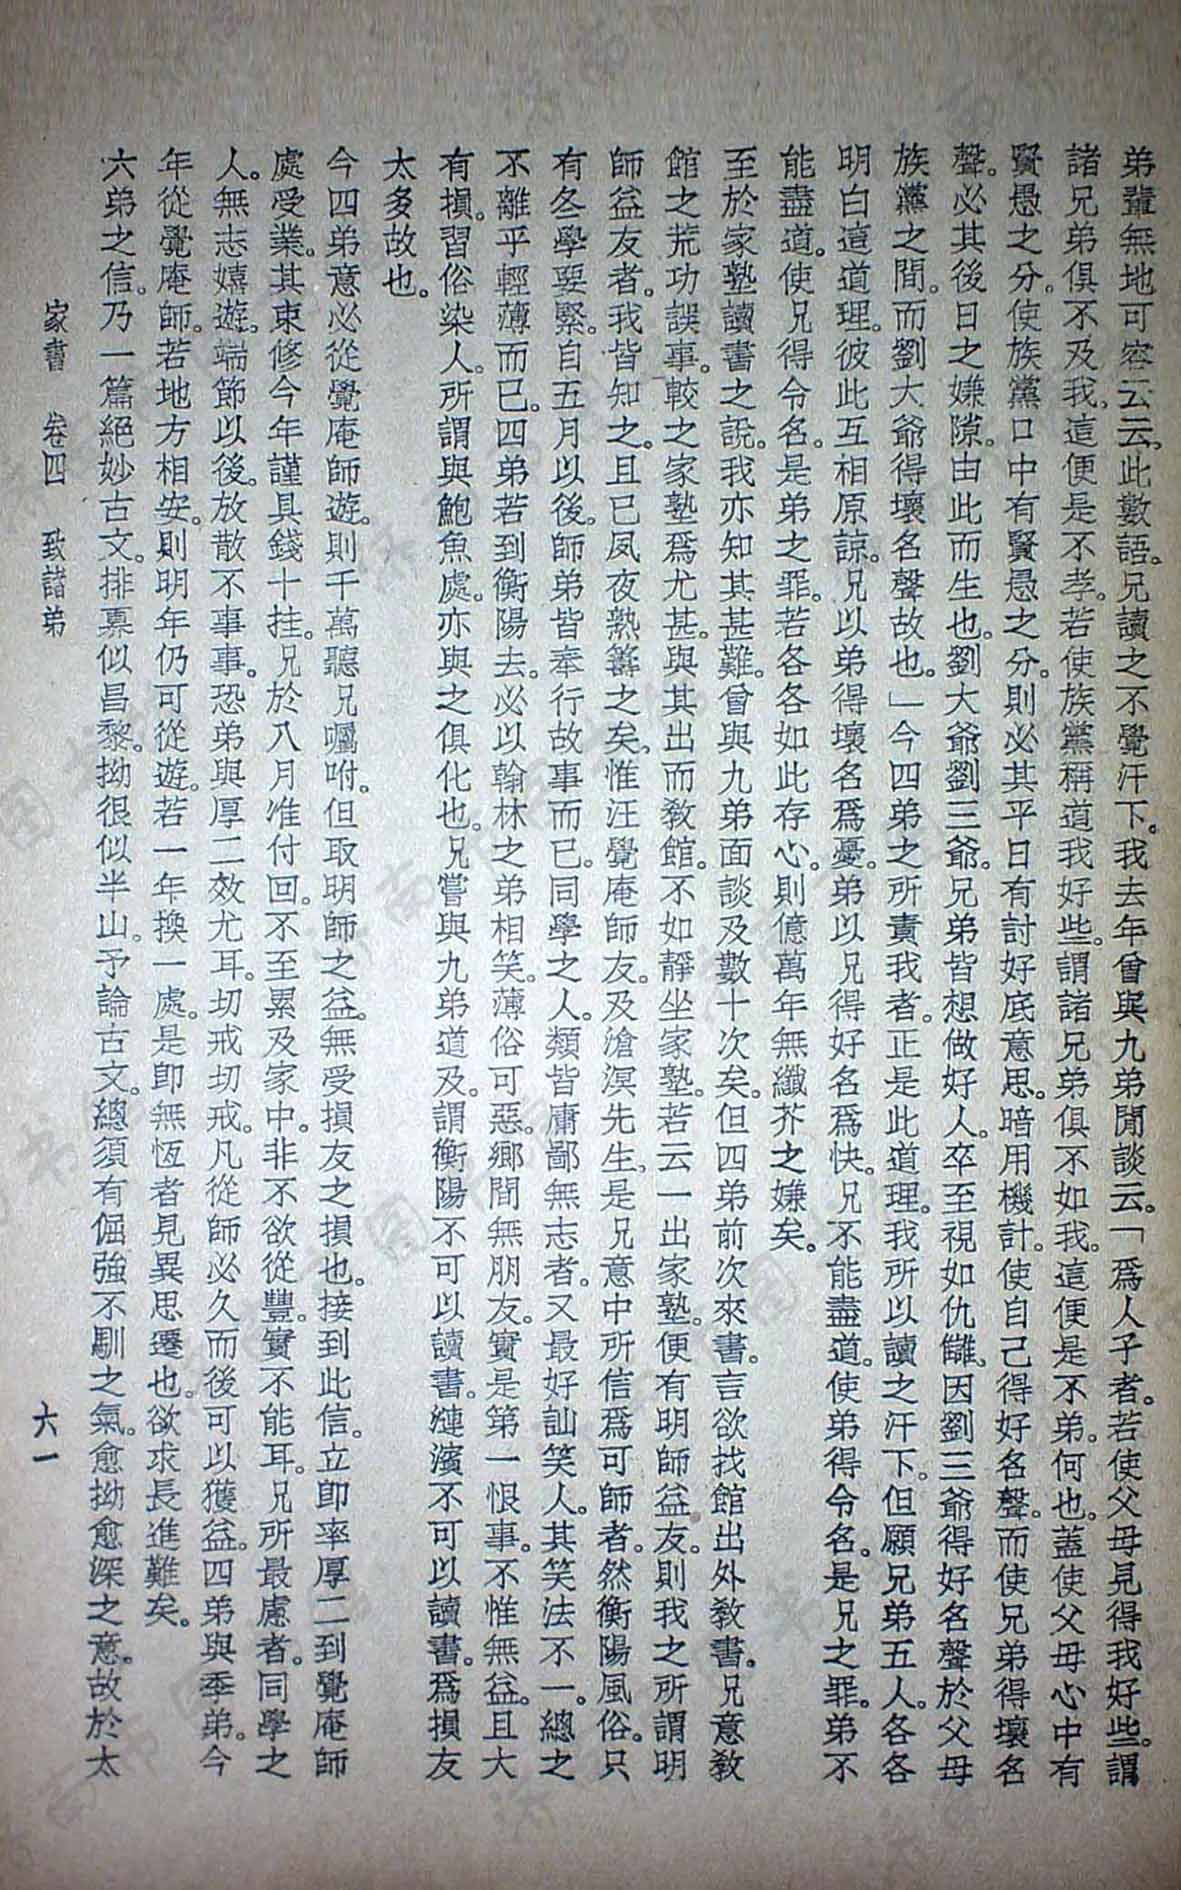 弟輩無地可容云云。此數語。兄讀之不覺汗下。我去年曾與九弟閒談云。「爲人子者。若使父母見得我好些。謂
諸兄弟俱不及我。這便是不孝。若使族黨稱道我好些。謂諸兄弟俱不如我。這便是不弟。何也。蓋使父母心中有
賢愚之分。使族黨口中有賢愚之分。則必其平日有討好底意思。暗用機計。使自己得好名聲。而使兄弟得壞名
聲。必其後日之嫌隙。由此而生也。劉大爺劉三爺。兄弟皆想做好人。卒至視如仇讎。因劉三爺得好名聲於父母
族黨之間。而劉大爺得壞名聲故也。」今四弟之所責我者。正是此道理。我所以讀之汗下。但願兄弟五人。各各
明白這道理。彼此互相原諒。兄以弟得壞名爲憂。弟以兄得好名爲快。兄不能盡道。使弟得令名。是兄之罪。弟不
能盡道。使兄得令名。是弟之罪。若各各如此存心。則億萬年無纖芥之嫌矣。
至於家塾讀書之說。我亦知其甚難。曾與九弟面談及數十次矣。但四弟前次來書。言欲找館出外教書。兄意教
館之荒功誤事。較之家塾爲尤甚。與其出而教館。不如靜坐家塾。若云一出家塾。便有明師益友。則我之所謂明
師益友者。我皆知之。且已夙夜熟籌之矣。惟汪覺庵師友。及滄溟先生。是兄意中所信爲可師者。然衡陽風俗。只
有冬學要緊。自五月以後。師弟皆奉行故事而已。同學之人。類皆庸鄙無志者。又最好訕笑人。其笑法不一。總之
不離乎輕薄而已。四弟若到衡陽去。必以翰林之弟相笑。薄俗可惡。鄉間無朋友。實是第一恨事。不惟無益。且大
有損。習俗染人。所謂與鮑魚處。亦與之俱化也。兄嘗與九弟道及。謂衡陽不可以讀書。漣濱不可以讀書。爲損友
太多故也。
今四弟意必從覺庵師遊。則千萬聽兄囑咐。但取明師之益。無受損友之損也。接到此信。立即率厚二到覺庵師
處受業。其束修今年謹具錢十挂。兄於八月准付回。不至累及家中。非不欲從豐。實不能耳。兄所最慮者。同學之
人。無志嬉遊。端節以後。放散不事事。恐弟與厚二效尤耳。切戒切戒。凡從師必久而後可以獲益。四弟與季弟。今
年從覺庵師。若地方相安。則明年仍可從遊。若一年換一處。是即無恆者見異思遷也。欲求長進難矣。
六弟之信。乃一篇絕妙古文。排奡似昌黎。拗很似半山。予論古文。總須有倔強不馴之氣。愈拗愈深之意。故於太
家書 卷四 致諸弟 六一